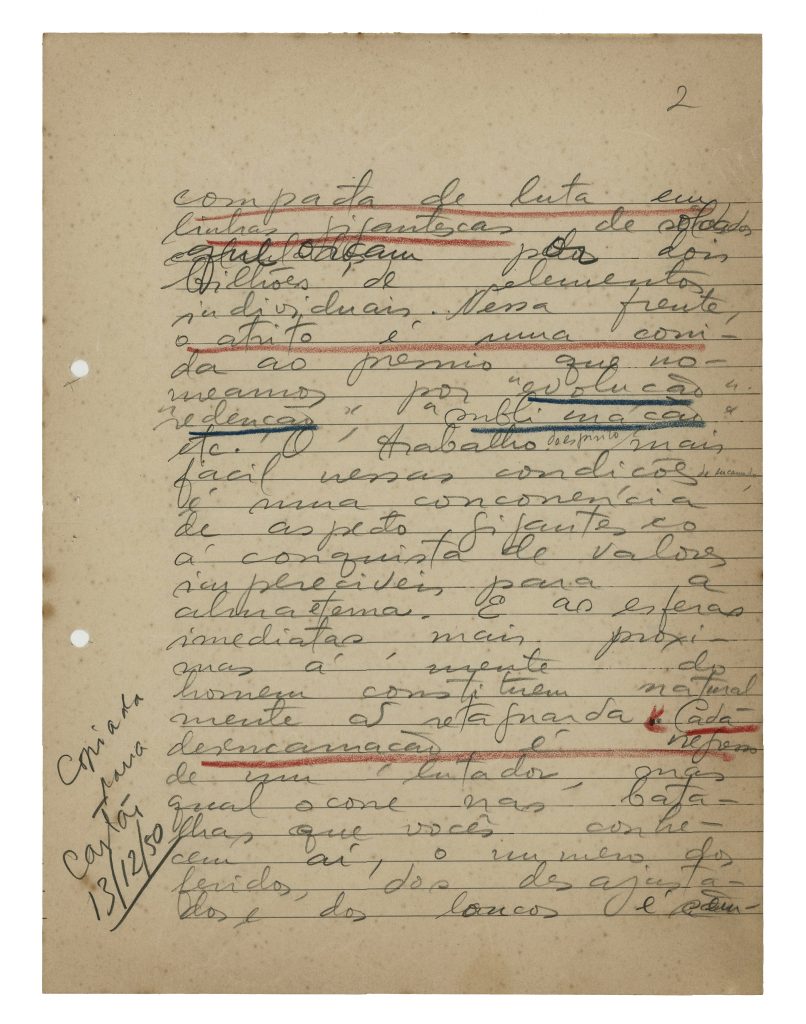 2
compacta de luta em
linhas gigantescas de soldados
que orçam por dois
bilhões de elementos
individuais. Nessa frente,
o atrito é uma corri-
da ao premio que no-
meamos por "evolução",
"redenção", "sublimação"
etc. O trabalho do espirito mais
facil nessas condições de encarnado
é uma concorrência
de aspecto gigantesco
á conquista de valores
impereciveis para a
alma eterna. E as esferas
imediatas mais proxi-
mas á mente do
homem constituem natural
mente a retaguarda. Cada
desencarnação é regresso
de um lutador, mas
qual ocorre nas bata-
lhas que vocês conhe-
cem aí, o numero dos
feridos, dos desajusta-
dos e dos loucos é sem-
Copiada
para
Cartão
13/12/50